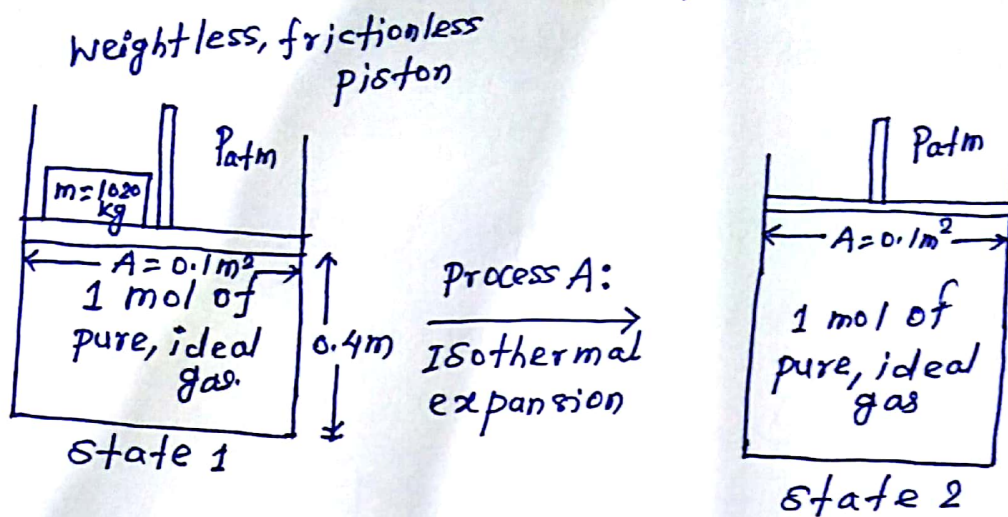 Weightless, frictionless
piston
Patm
m=1020
kg
A=0.1m²
1 mol of
pure, ideal
gas.
0.4m
State 1
Process A:
Isothermal
expansion
Patm
A=0.1m²
1 mol of
pure, ideal
gas
State 2